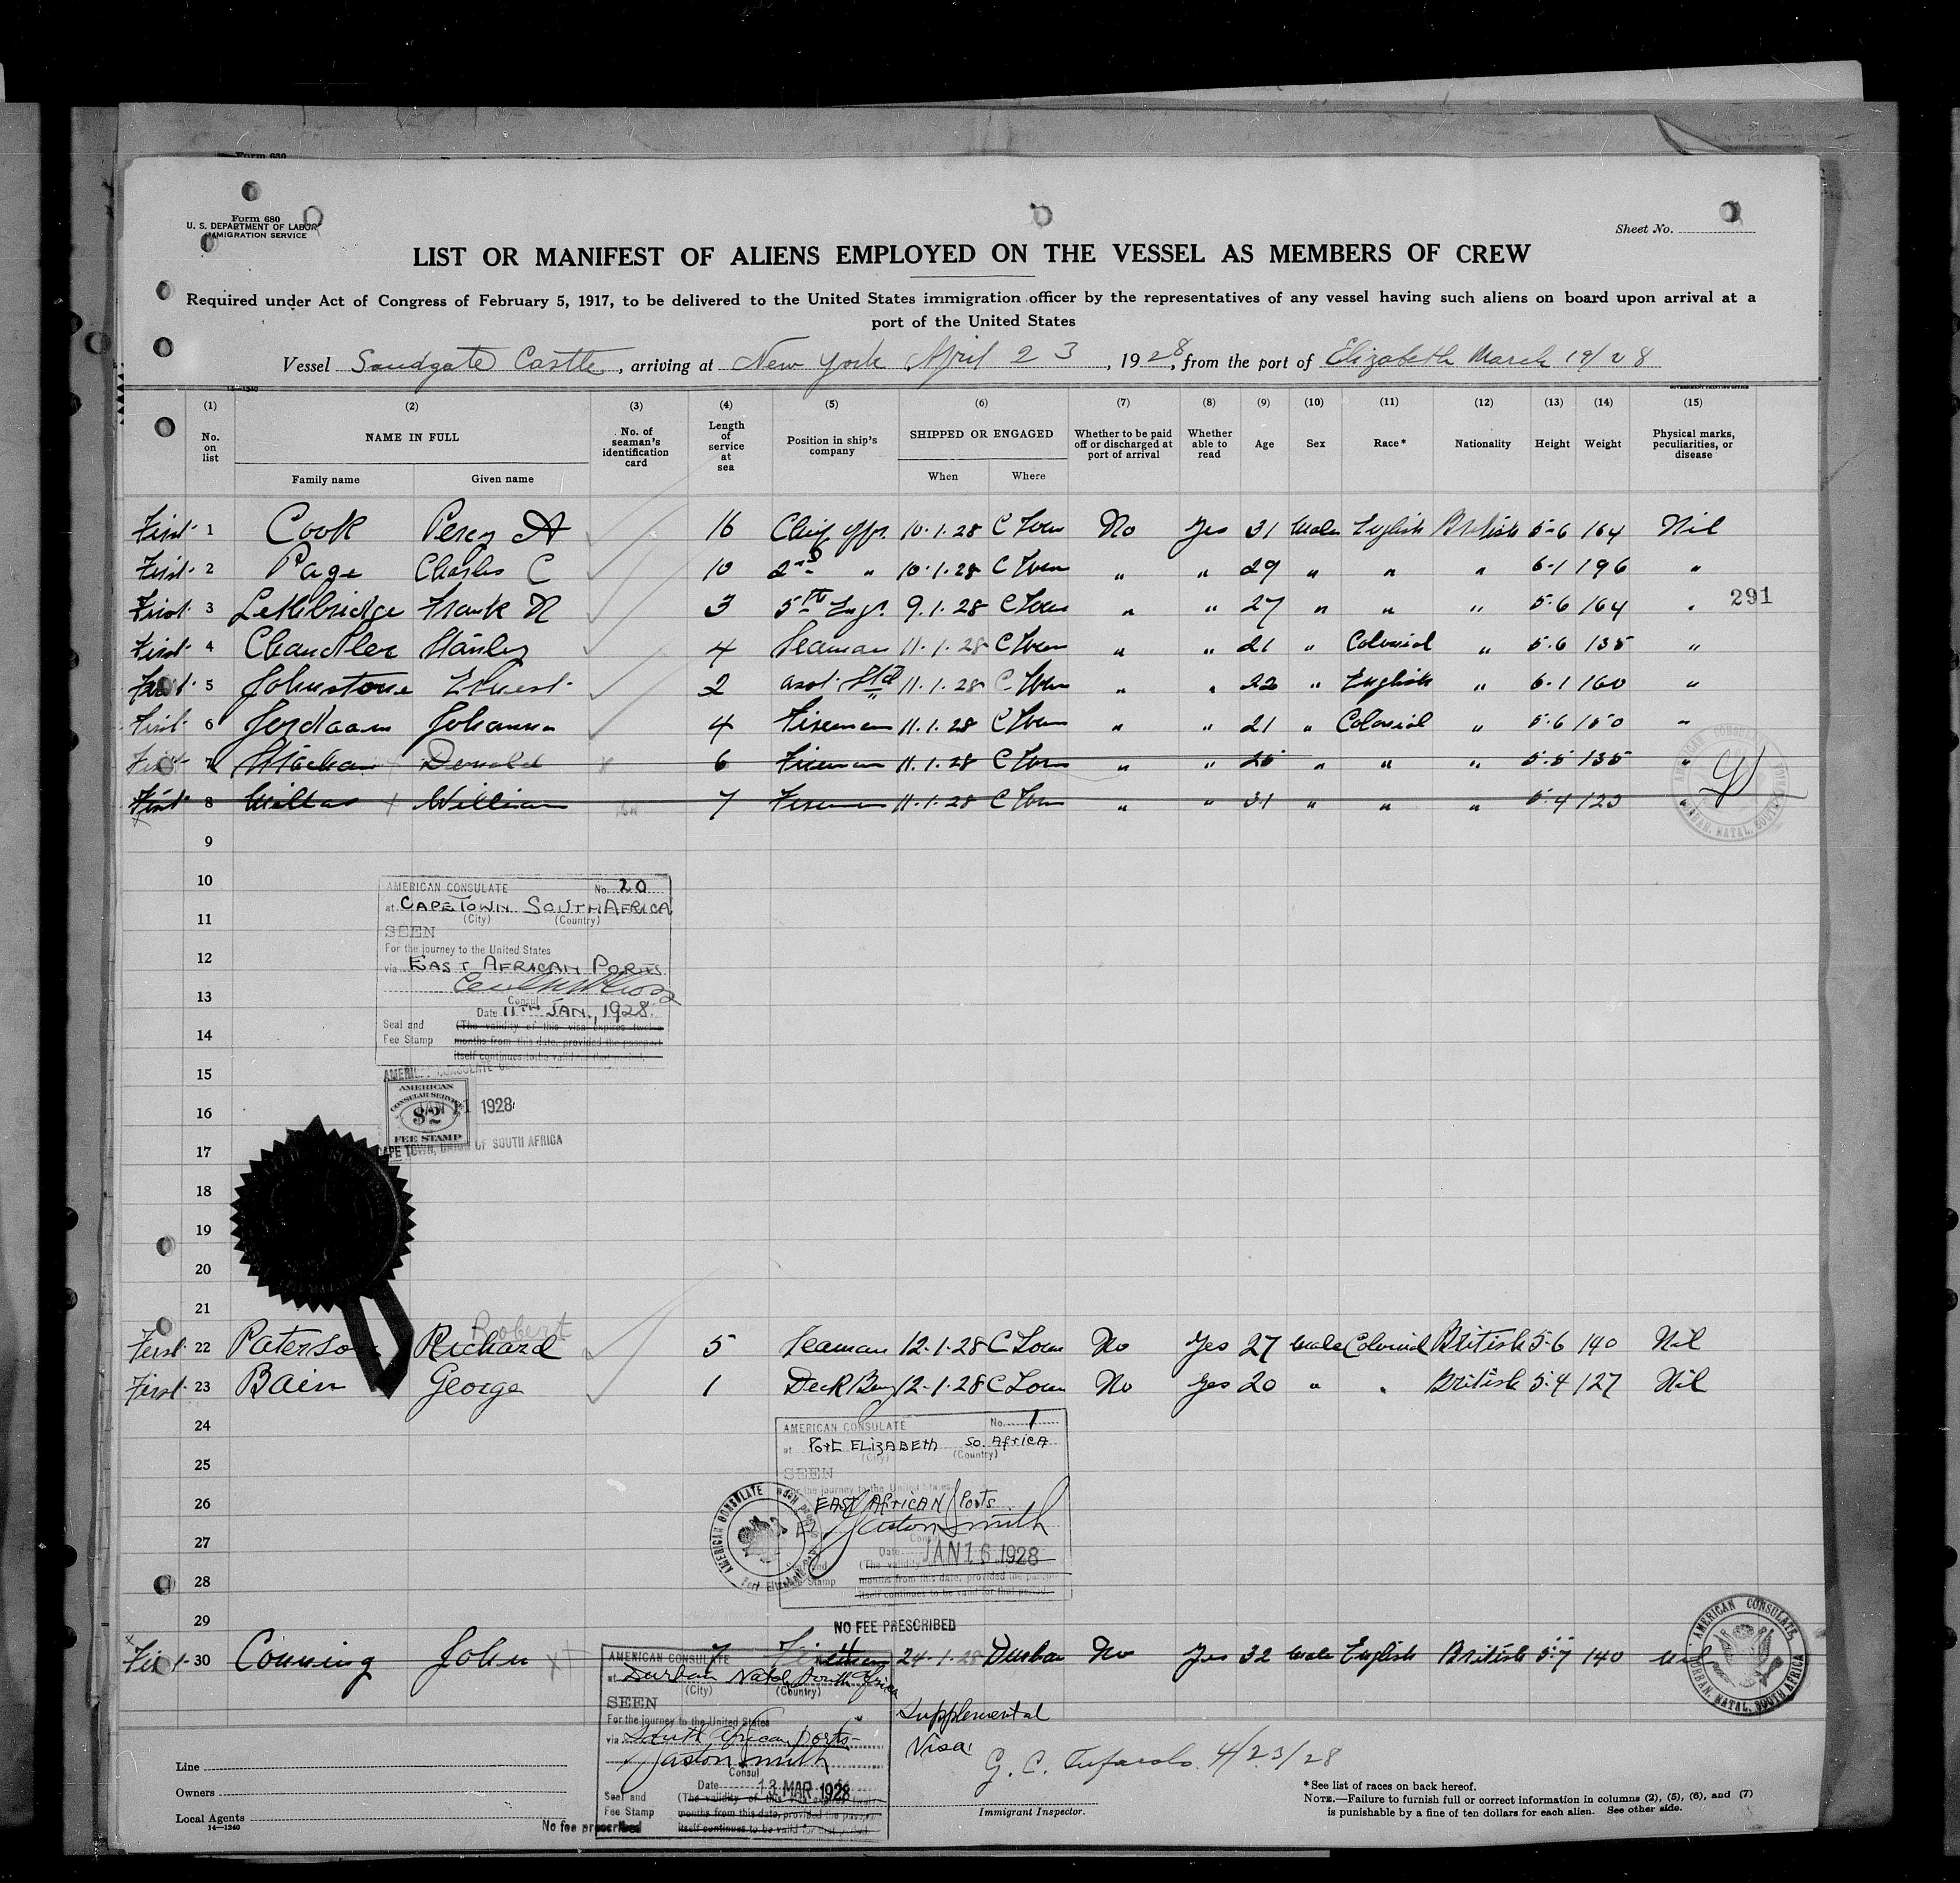 Form 680
U. S. DEPARTMENT OF LABOR
IMMIGRATION SERVICE
Sheet No.
LIST OR MANIFEST OF ALIENS EMPLOYED ON THE VESSEL AS MEMBERS OF CREW
Required under Act of Congress of February 5, 1917, to be delivered to the United States immigration officer by the representatives of any vessel having such aliens on board upon arrival at a
port of the United States
Vessel Sandgate Castle, arriving at New York April 23, 1928, from the port of Elizabeth March 19/28
14—1240
GOVERNMENT PRINTING OFFICE
(1) (2) (3) (4) (5) (6) (7) (8) (9) (10) (11) (12) (13) (14) (15)
No. on list
NAME IN FULL
Family name
Given name
No. of seaman's identification card
Length of service at sea
Position in ship's company
SHIPPED OR ENGAGED
When
Where
Whether to be paid off or discharged at port of arrival
Whether able to read
Age
Sex
Race*
Nationality
Height
Weight
Physical marks, peculiarities, or disease
First 1 Cook Percy A 16 Chief Offr. 10.1.28 C Town No Yes 31 Male English British 5-6 164 Nil
First 2 Page Charles C 10 2nd " 10.1.28 C Town " " 29 " " " 6-1 196 "
First 3 Lethbridge Frank N 3 5th Engr. 9.1.28 C Town " " 27 " " " 5.6 164 "
291
First 4 Chandler Stanley 4 Seaman 11.1.28 C Town " " 21 " Colonial " 5.6 135 "
First 5 Johnstone Ernest 2 asst. Std 11.1.28 C Town " " 22 " English " 6.1 160 "
First 6 Jordaan Johannn 4 Fireman 11.1.28 C Town " " 21 " Colonial " 5.6 150 "
First 7 Donald 6 Fireman 11.1.28 C Town " " 25 " " " 5.5 135 "
First 8 William 7 Fireman 11.1.28 C Town " " 31 " " " 5.4 123 "
9
10
11
12
13
14
15
16
17
18
19
20
21
AMERICAN CONSULATE No. 20
at CAPE TOWN SOUTH AFRICA
(City) (Country)
SEEN
For the journey to the United States
via EAST AFRICAN PORTS
Consul
Date 11TH JAN., 1928.
Seal and Fee Stamp
(The validity of this visa expires twelve
months from this date, provided the passport
itself continues to be valid for that period.
AMERICAN
CONSULAR SERVICE
$2
FEE STAMP
JAN 11 1928
CAPE TOWN, UNION OF SOUTH AFRICA
Robert
First 22 Paterson Richard 5 Seaman 12.1.28 C Town No Yes 27 Male Colonial British 5.6 140 Nil
First 23 Bain George 1 Deck Boy 12.1.28 C Town No Yes 20 " " British 5.4 127 Nil
24
25
26
27
28
29
AMERICAN CONSULATE No. 1
at Port ELIZABETH So. AFRICA
(City) (Country)
SEEN
For the journey to the United States
EAST AFRICAN Ports
Gaston Smith
Consul
Date JAN 16 1928
Seal and Fee Stamp
(The validity
months from this date, provided the passport
itself continues to be valid for that period.
AMERICAN CONSULATE
Port Elizabeth
NO FEE PRESCRIBED
First 30 Conning John 7 Fireman 24.1.28 Durban No Yes 32 Male English British 5.7 140 Nil
AMERICAN CONSULATE
DURBAN, NATAL, SOUTH AFRICA
AMERICAN CONSULATE
at Durban Natal South Africa
(City) (Country)
SEEN
For the journey to the United States
via South African ports
Gaston Smith
Consul
Date 13 MAR 1928
Seal and Fee Stamp
(The validity of this visa expires twelve
months from this date, provided the passport
itself continues to be valid for that period.
No fee prescribed
Supplemental
Visa
G. C. 4/23/28
Immigrant Inspector.
Line
Owners
Local Agents
14—1240
*See list of races on back hereof.
NOTE.—Failure to furnish full or correct information in columns (2), (5), (6), and (7)
is punishable by a fine of ten dollars for each alien. See other side.